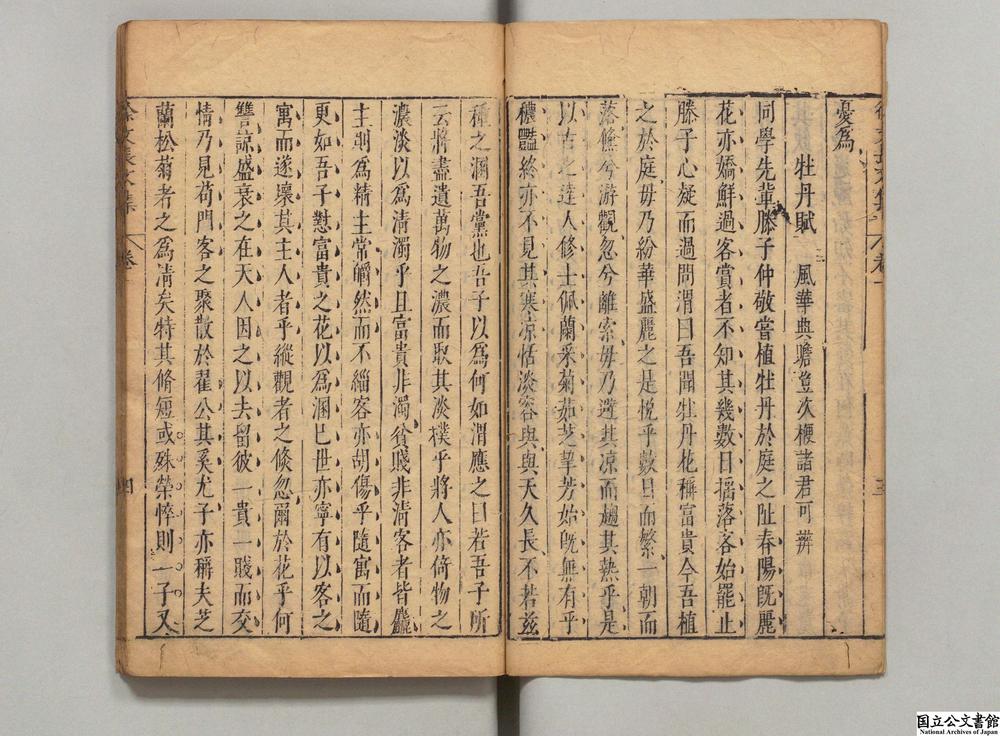 憂爲
牡丹賦 風華典贍登次楩諸君可辨
同學先輩滕子仲敬嘗植牡丹於庭之阯春陽旣麗
花亦嬌鮮過客賞者不知其幾數日搖落客始罷止
滕子心疑而過問渭曰吾聞牡丹花稱富貴今吾植
之於庭毋乃紛華盛麗之是悅乎數日而繁一朝而
落倏兮游觀忽兮離索毋乃避其凉而趨其熱乎是
以古之達人修士佩蘭采菊茹芝挈芳始旣無有乎
穠豔終亦不見其寒凉恬淡容與與天久長不若兹
種之溷吾黨也吾子以爲何如渭應之曰若吾子所
云將盡遺萬物之濃而取其淡樸乎將人亦倚物之
濃淡以爲清濁乎且富貴非濁貧賤非清客者皆麤
主則爲精主常皭然而不緇客亦胡傷乎隨寓而隨
更如吾子懟富貴之花以爲溷己世亦寧有以客之
寓而遂壞其主人者乎縱觀者之倏忽爾於花乎何
讐諒盛衰之在天人因之以去留彼一貴一賤而交
情乃見苟門客之聚散於翟公其奚尤子亦稱夫芝
蘭松菊者之爲清矣特其脩短或殊榮悴則一子又
徐文長文集 卷一 三
徐文長文集 卷一 四
国立公文書館
National Archives of Japan